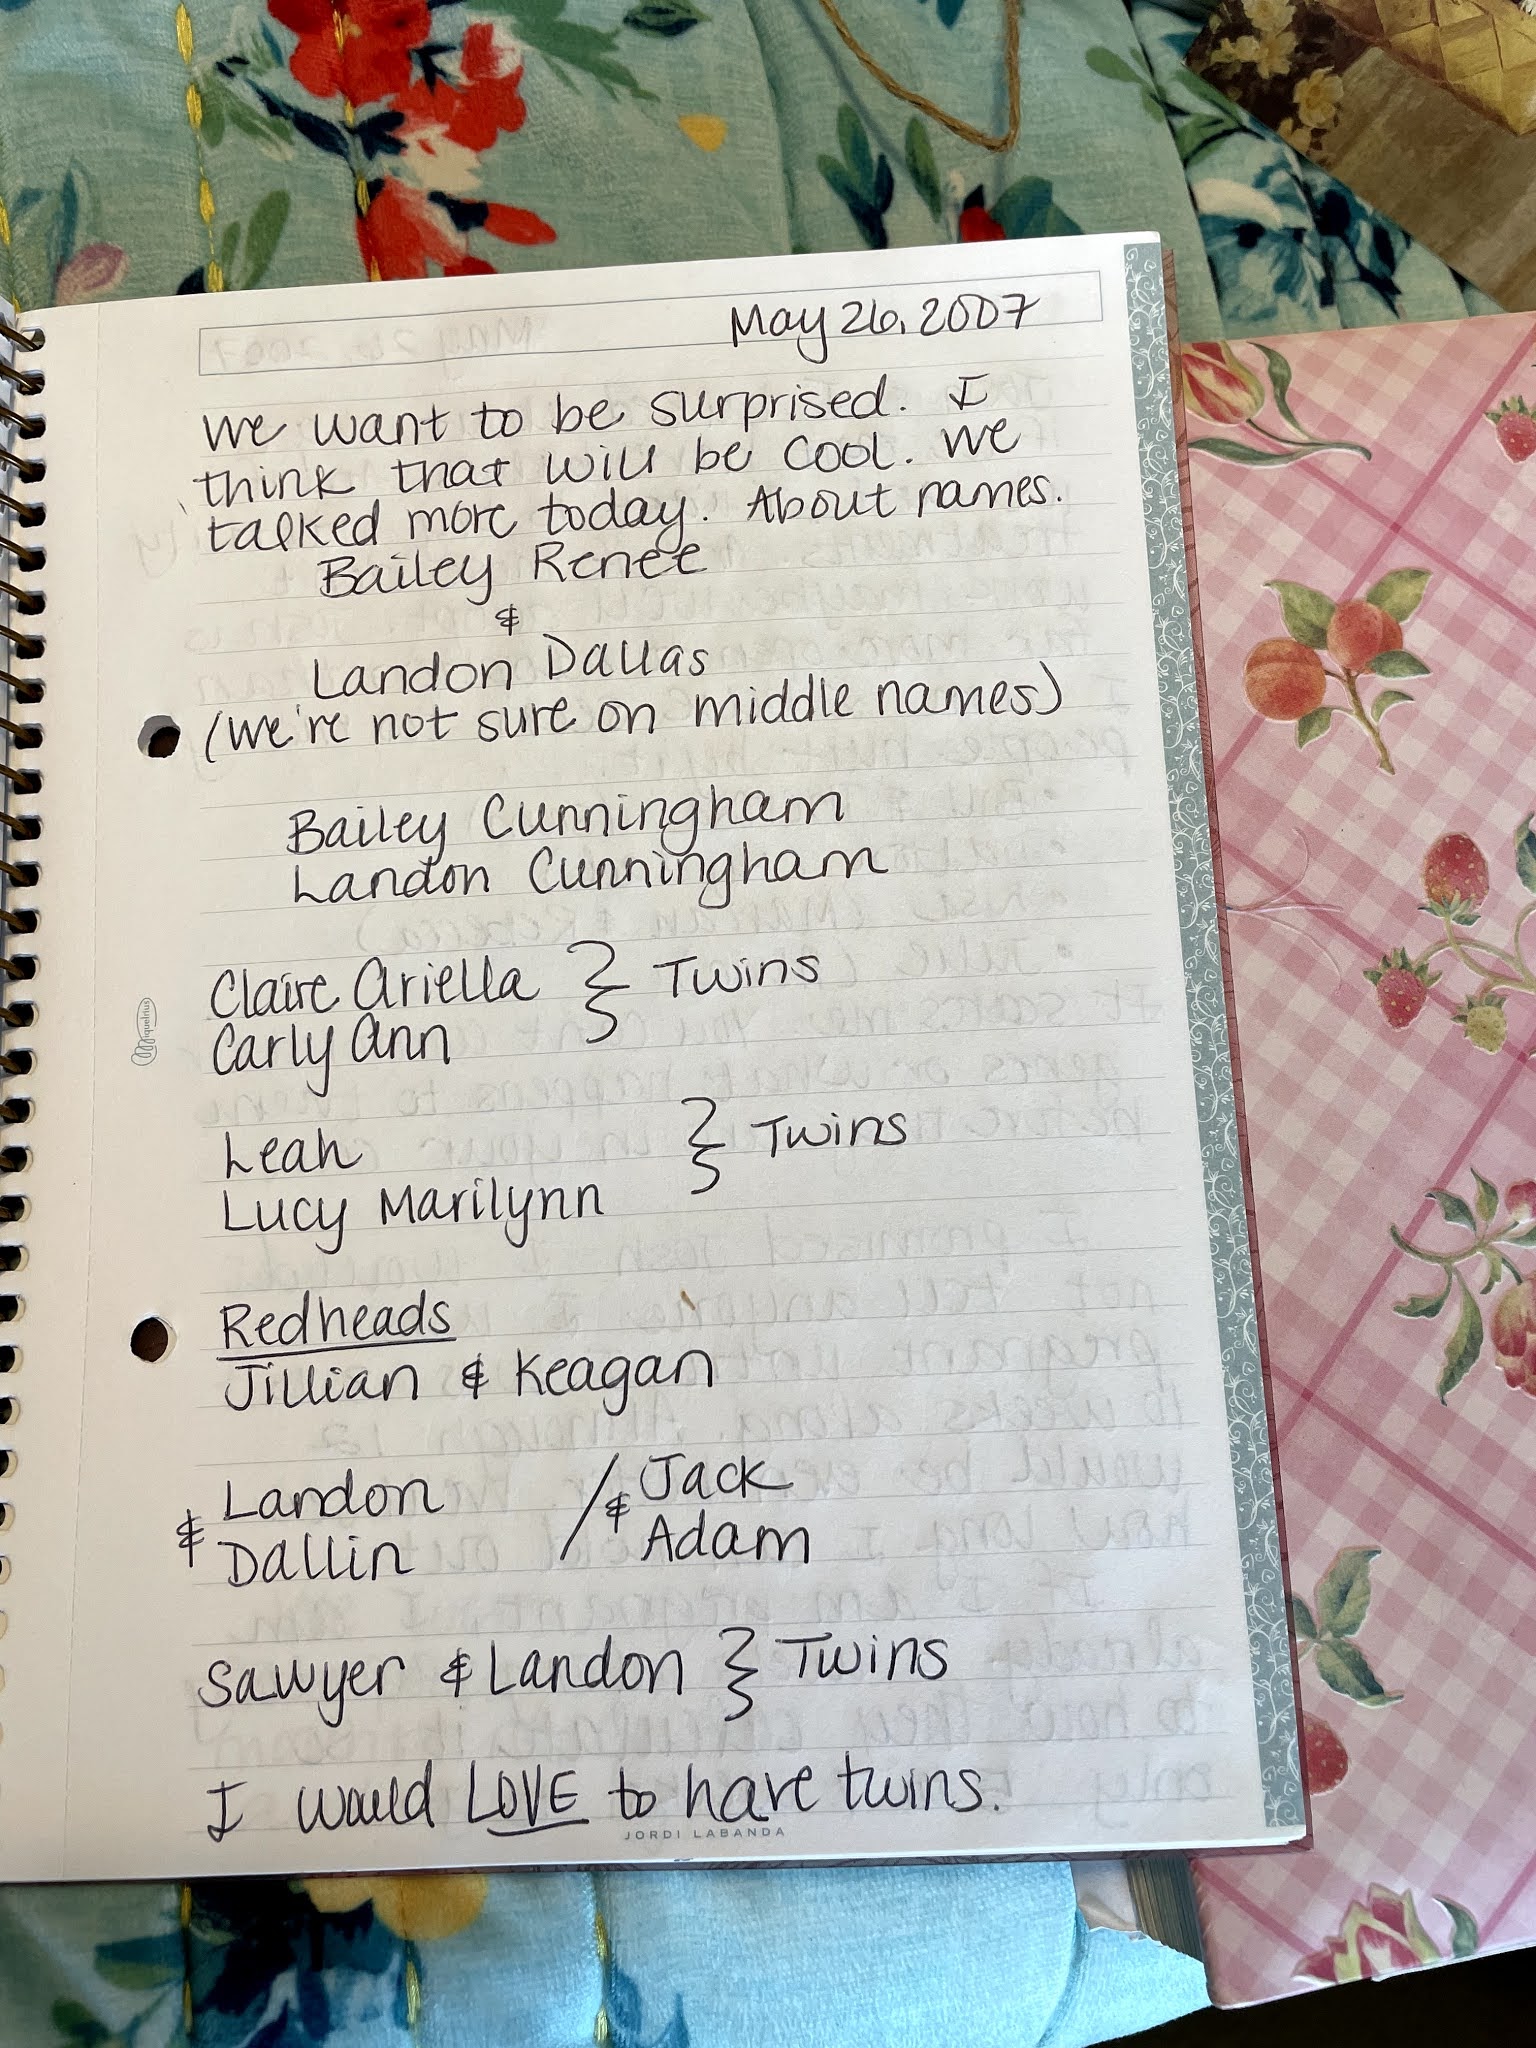 May 26, 2007
We want to be surprised. I
think that will be cool. We
talked more today. About names.
Bailey Renee
&
Landon Dallas
(we're not sure on middle names)
Bailey Cunningham
Landon Cunningham
Claire Ariella } Twins
Carly Ann
Leah } Twins
Lucy Marilynn
Redheads
Jillian & Keagan
Landon / Jack
& Dallin & Adam
Sawyer & Landon } Twins
I would LOVE to have twins.
JORDI LABANDA
Miquelrius